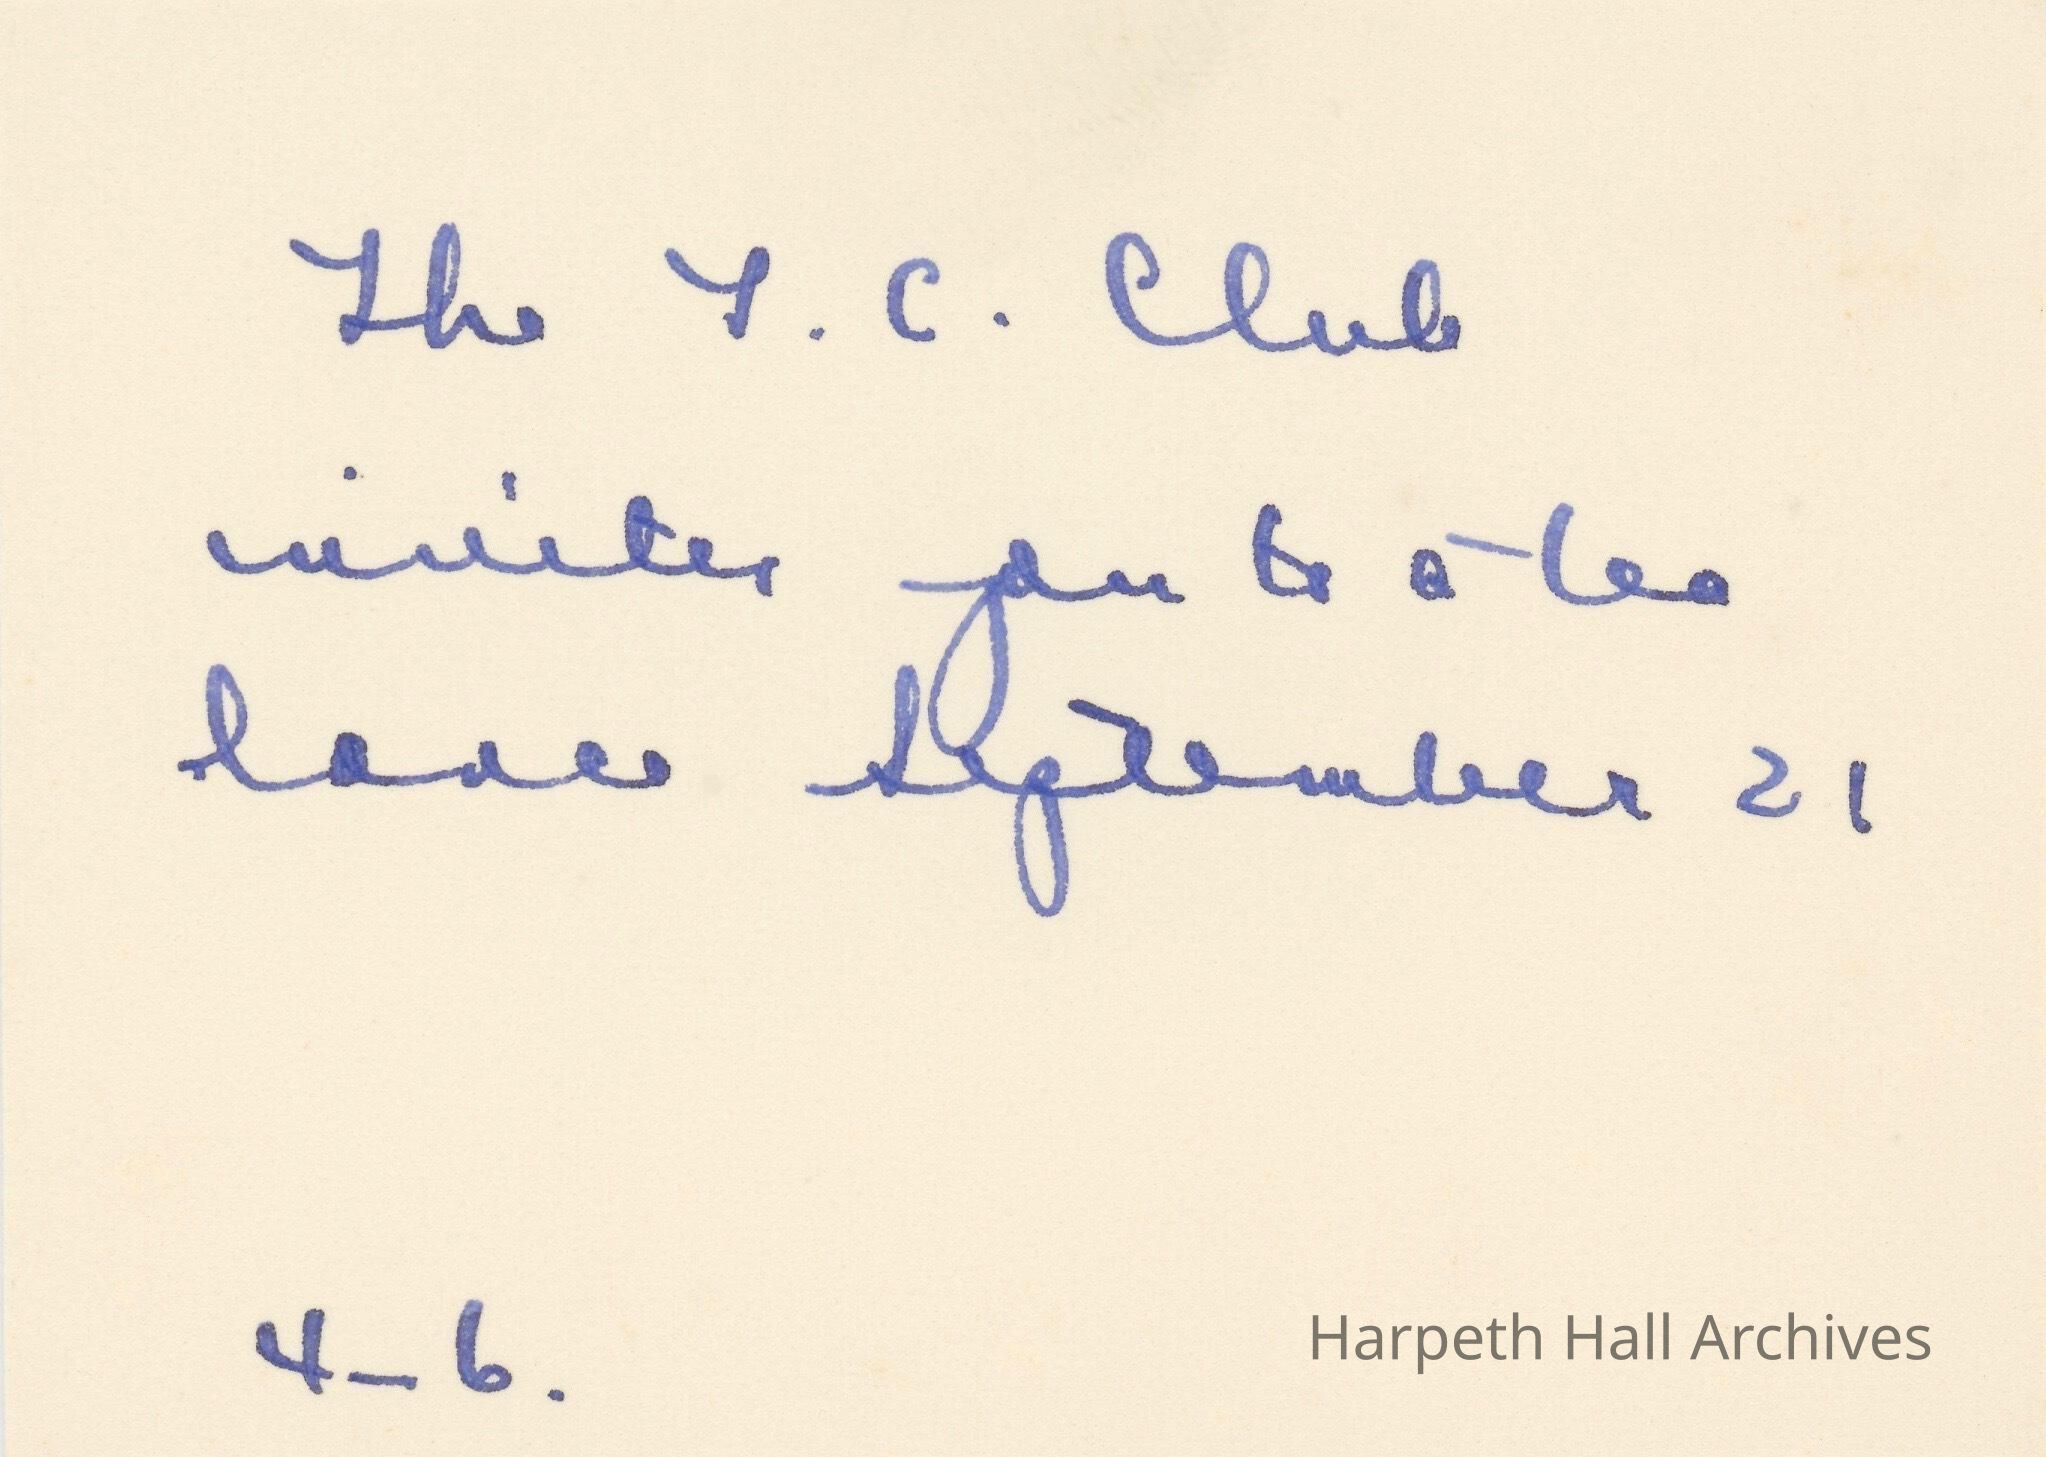 The T. C. Club
invites you to a tea
dance September 21
4-6.
Harpeth Hall Archives